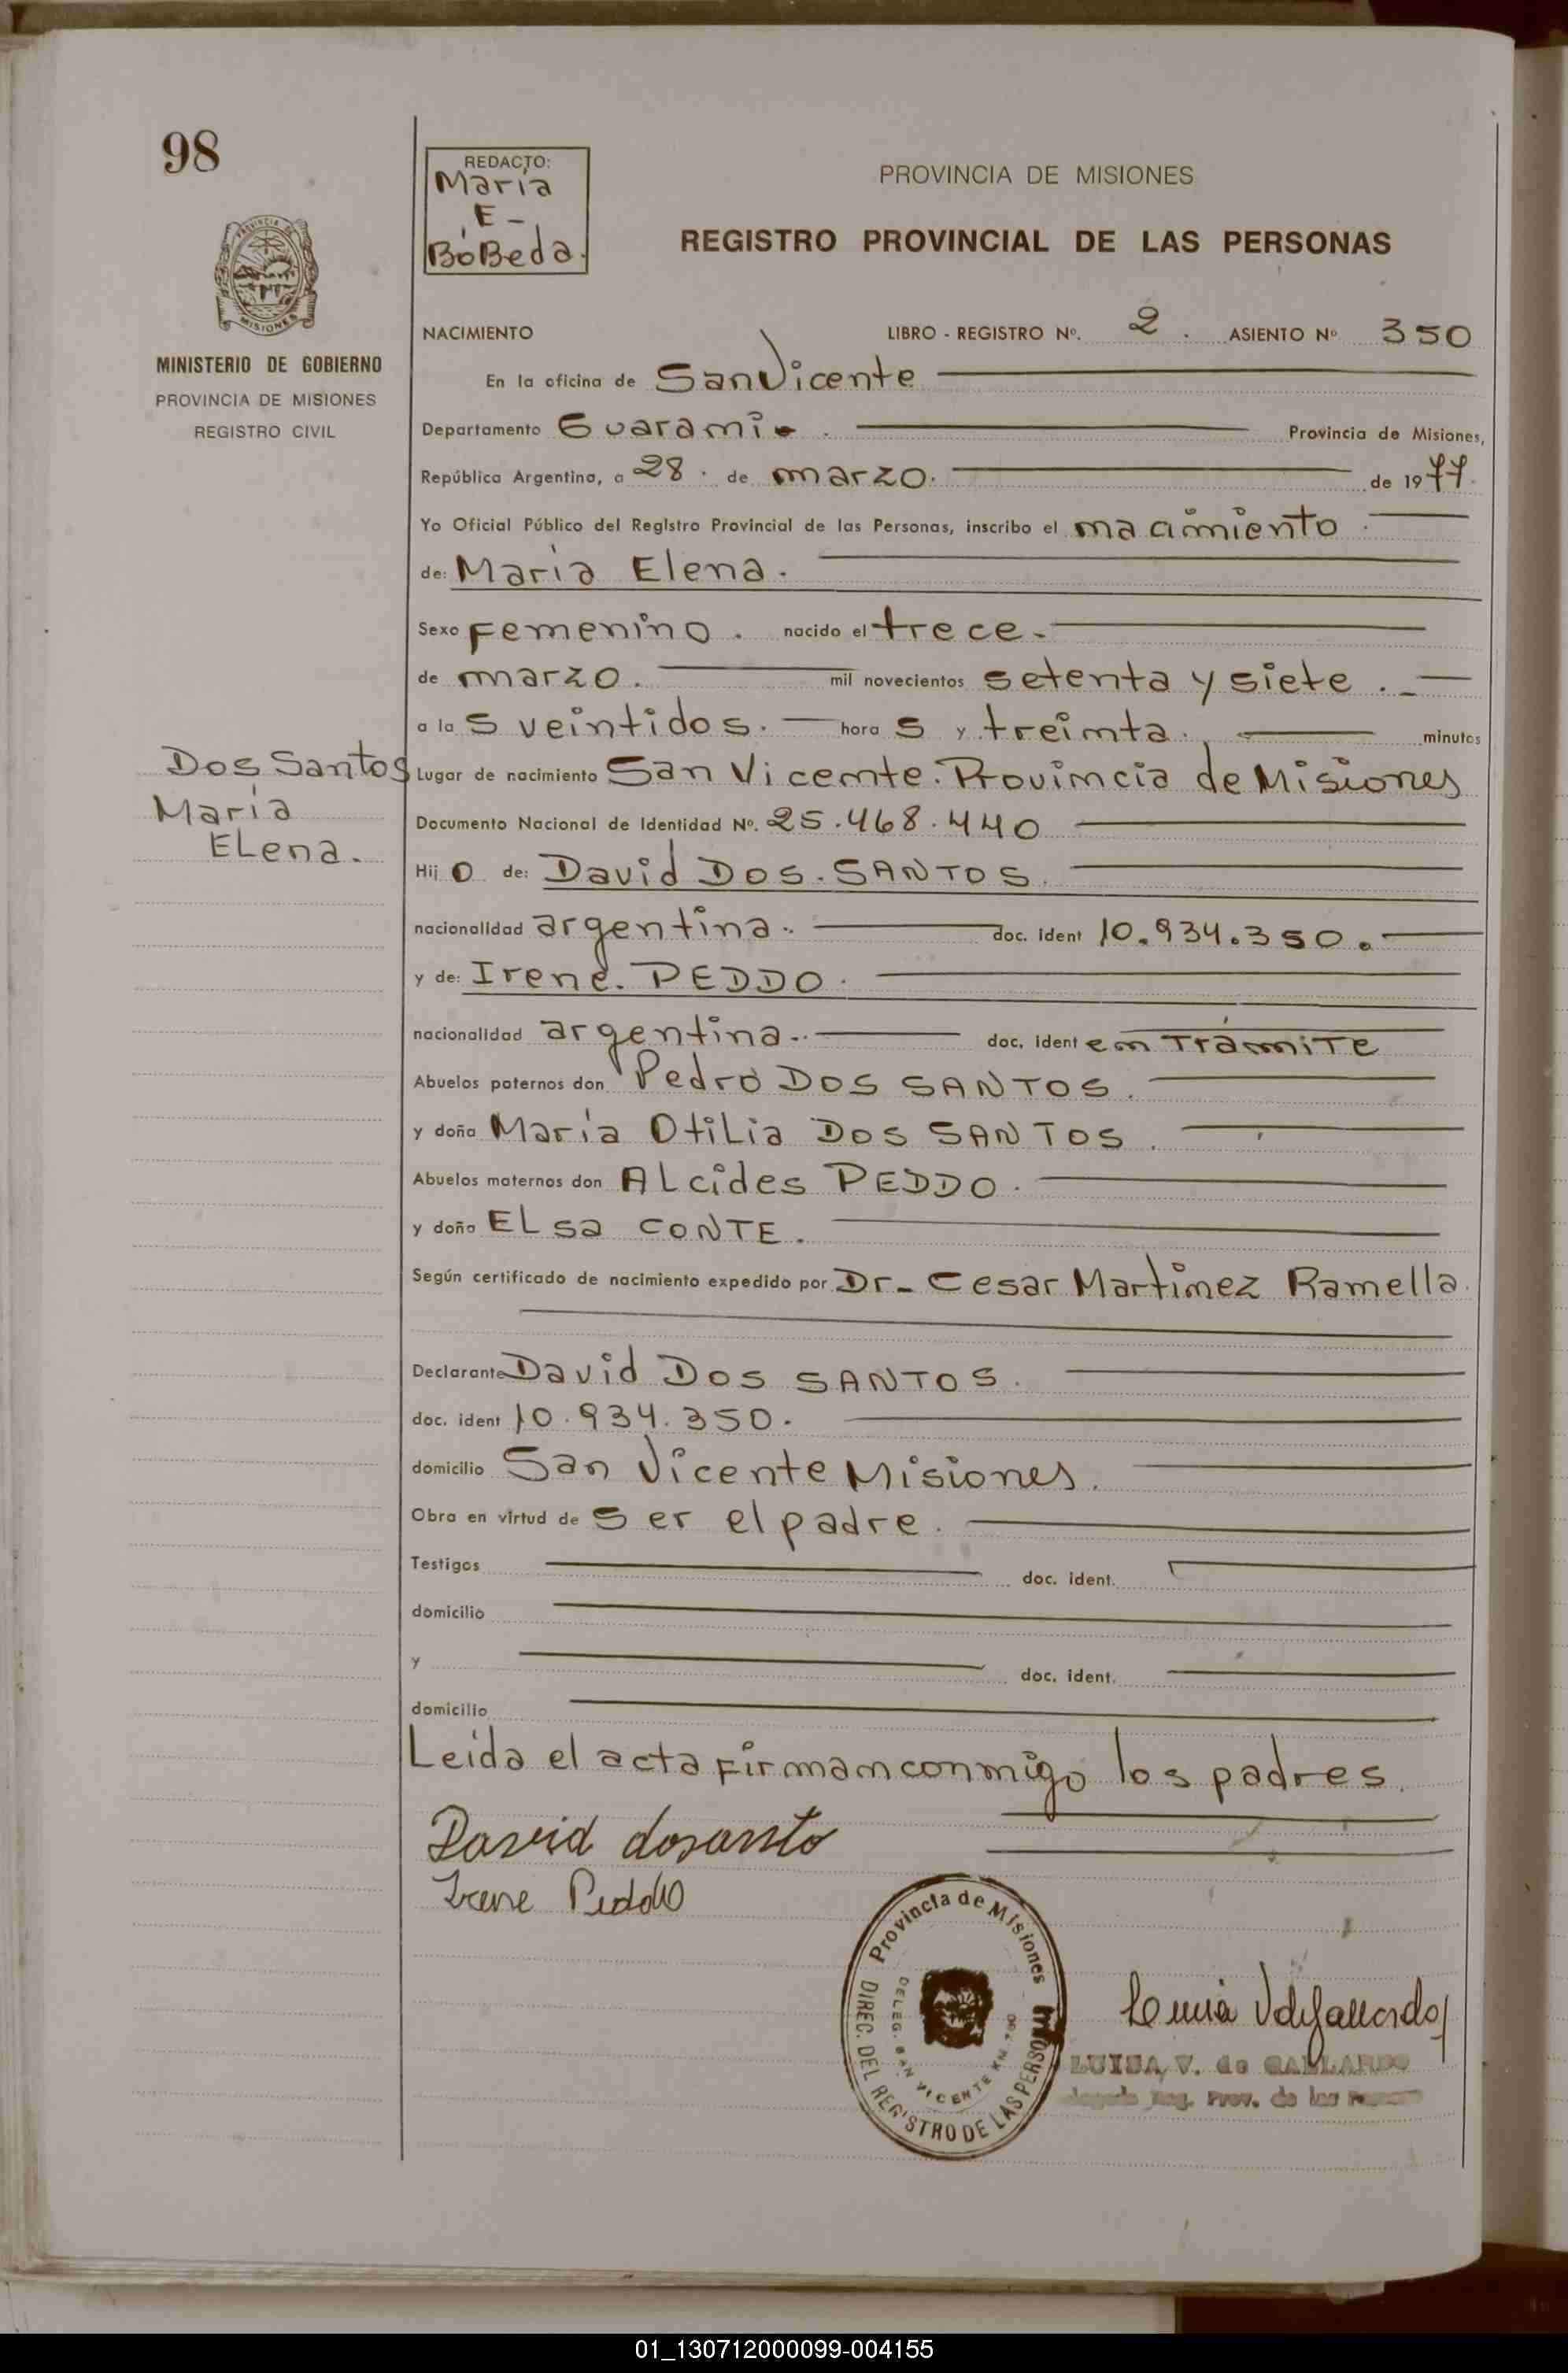 98
REDACTO:
María
E-
BoBeda.
PROVINCIA DE MISIONES
REGISTRO PROVINCIAL DE LAS PERSONAS
PROVINCIA DE
MISIONES
MINISTERIO DE GOBIERNO
PROVINCIA DE MISIONES
REGISTRO CIVIL
NACIMIENTO LIBRO - REGISTRO Nº. 2. ASIENTO Nº 350
En la oficina de San Vicente
Departamento Guarami. Provincia de Misiones,
República Argentina, a 28. de marzo. de 1977.
Yo Oficial Público del Registro Provincial de las Personas, inscribo el macimiento.
de: María Elena.
Sexo Femenino. nacido el trece.
de marzo. mil novecientos setenta y siete.
a las veintidos. horas y treimta. minutos
Dos Santos
María
ELena.
Lugar de nacimiento San Vicemte. Provimcia de Misiones
Documento Nacional de Identidad Nº. 25.468.440
Hijo de: David DOS. SANTOS.
nacionalidad argentina. doc. ident 10.934.350.
y de: Irene. PEDDO.
nacionalidad argentina. doc. ident em TrámiTE
Abuelos paternos don Pedro DOS SANTOS.
y doña María OtiLia DOS SANTOS.
Abuelos maternos don ALcides PEDDO.
y doña ELsa CONTE.
Según certificado de nacimiento expedido por Dr- Cesar Martimez Ramella.
Declarante David DOS SANTOS.
doc. ident 10.934.350.
domicilio San Vicente Misiones.
Obra en virtud de ser el padre.
Testigos doc. ident.
domicilio
y doc. ident.
domicilio
Leída el acta Firmam conmigo los padres.
David dosansto
Irene Peddo
Provincia de Misiones
DIREC. DEL REGISTRO DE LAS PERSONAS
DELEG. SAN VICENTE KM.
LUISA V. de GALLARDO
Reg. Prov. de las
01_130712000099-004155